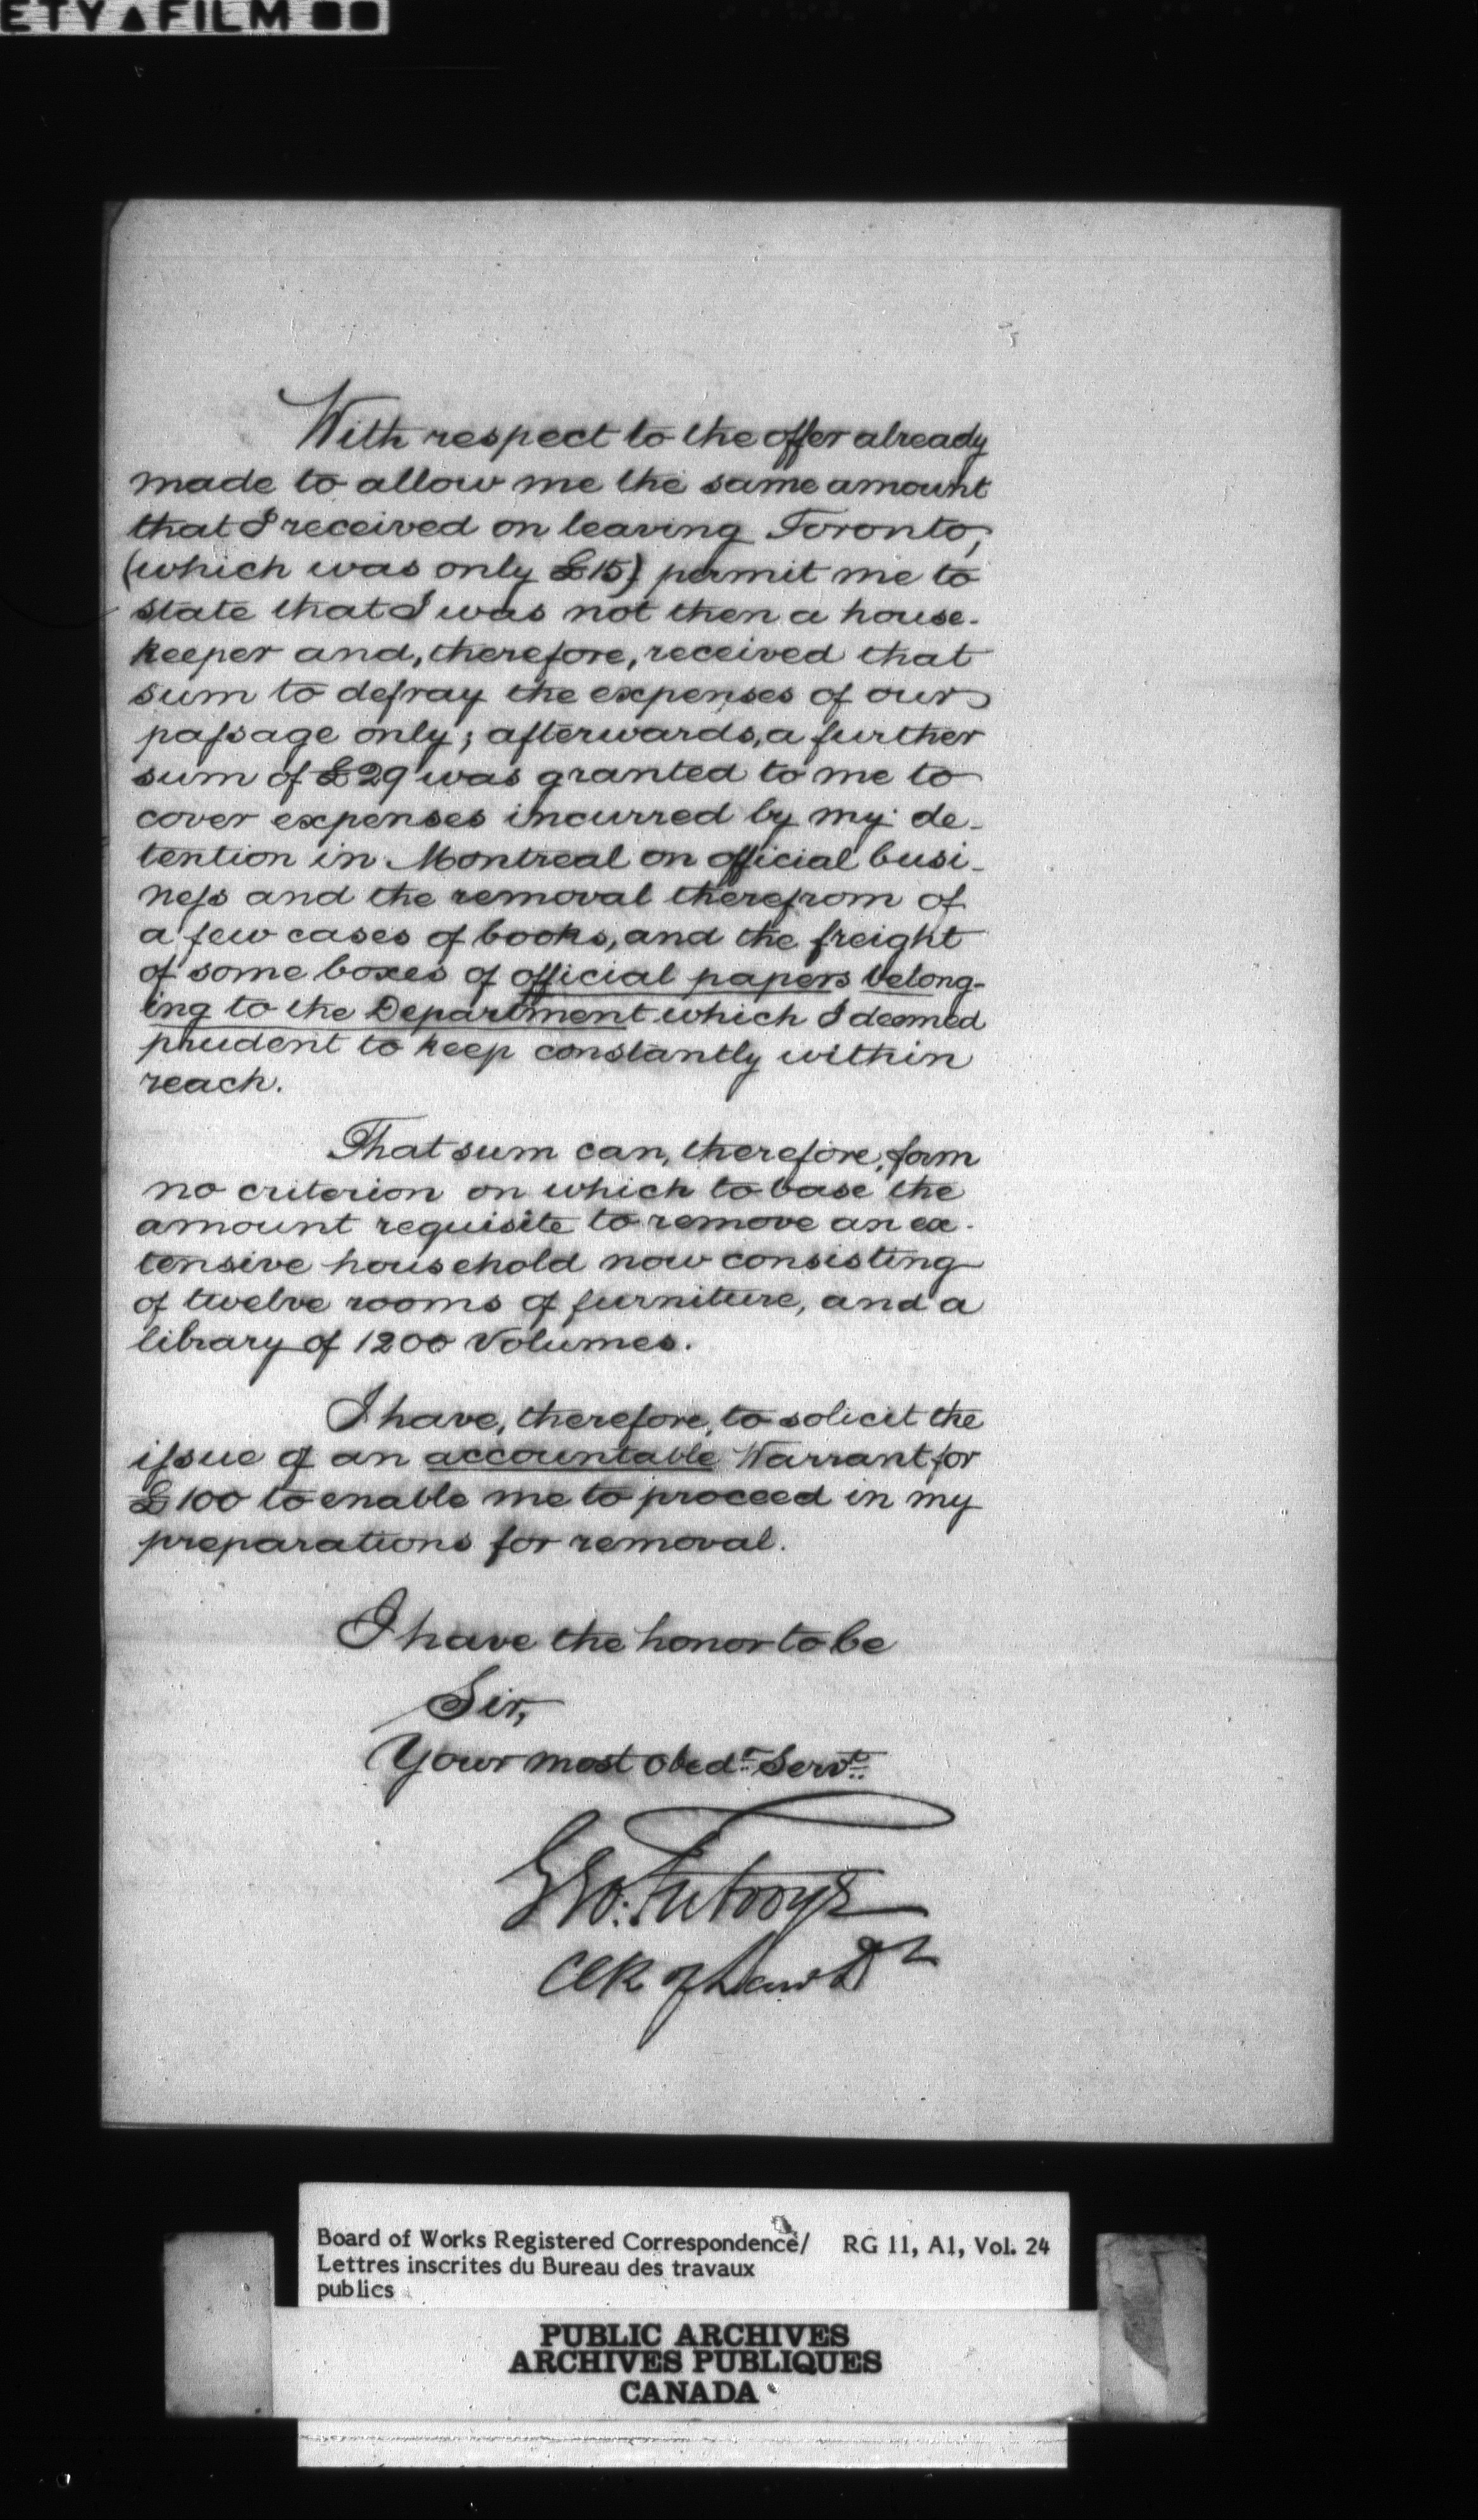 ETY▲FILM
With respect to the offer already
made to allow me the same amount
that I received on leaving Toronto,
(which was only £15) permit me to
state that I was not then a house-
keeper and, therefore, received that
sum to defray the expenses of our
paſsage only; afterwards, a further
sum of £29 was granted to me to
cover expenses incurred by my de-
tention in Montreal on official busi-
neſs and the removal therefrom of
a few cases of books, and the freight
of some boxes of official papers belong-
ing to the Department which I deemed
prudent to keep constantly within
reach.
That sum can, therefore, form
no criterion on which to base the
amount requisite to remove an ex-
tensive household now consisting
of twelve rooms of furniture, and a
library of 1200 Volumes.
I have, therefore, to solicit the
iſsue of an accountable Warrant for
£100 to enable me to proceed in my
preparations for removal.
I have the honor to be
Sir,
Your most Obedt Servt
Geo: Futvoye
Clk of Law Dt
Board of Works Registered Correspondence/ RG 11, A1, Vol. 24
Lettres inscrites du Bureau des travaux
publics
PUBLIC ARCHIVES
ARCHIVES PUBLIQUES
CANADA